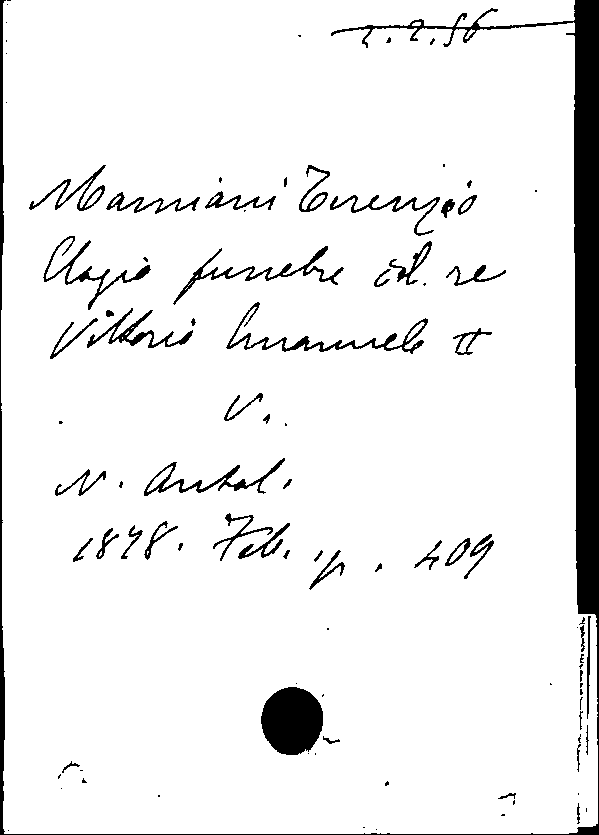 2.2.56
Mamiani Terenzio
Elogio funebre del re
Vittorio Emanuele II
V.
N. Antol.
1878. Feb. p. 409